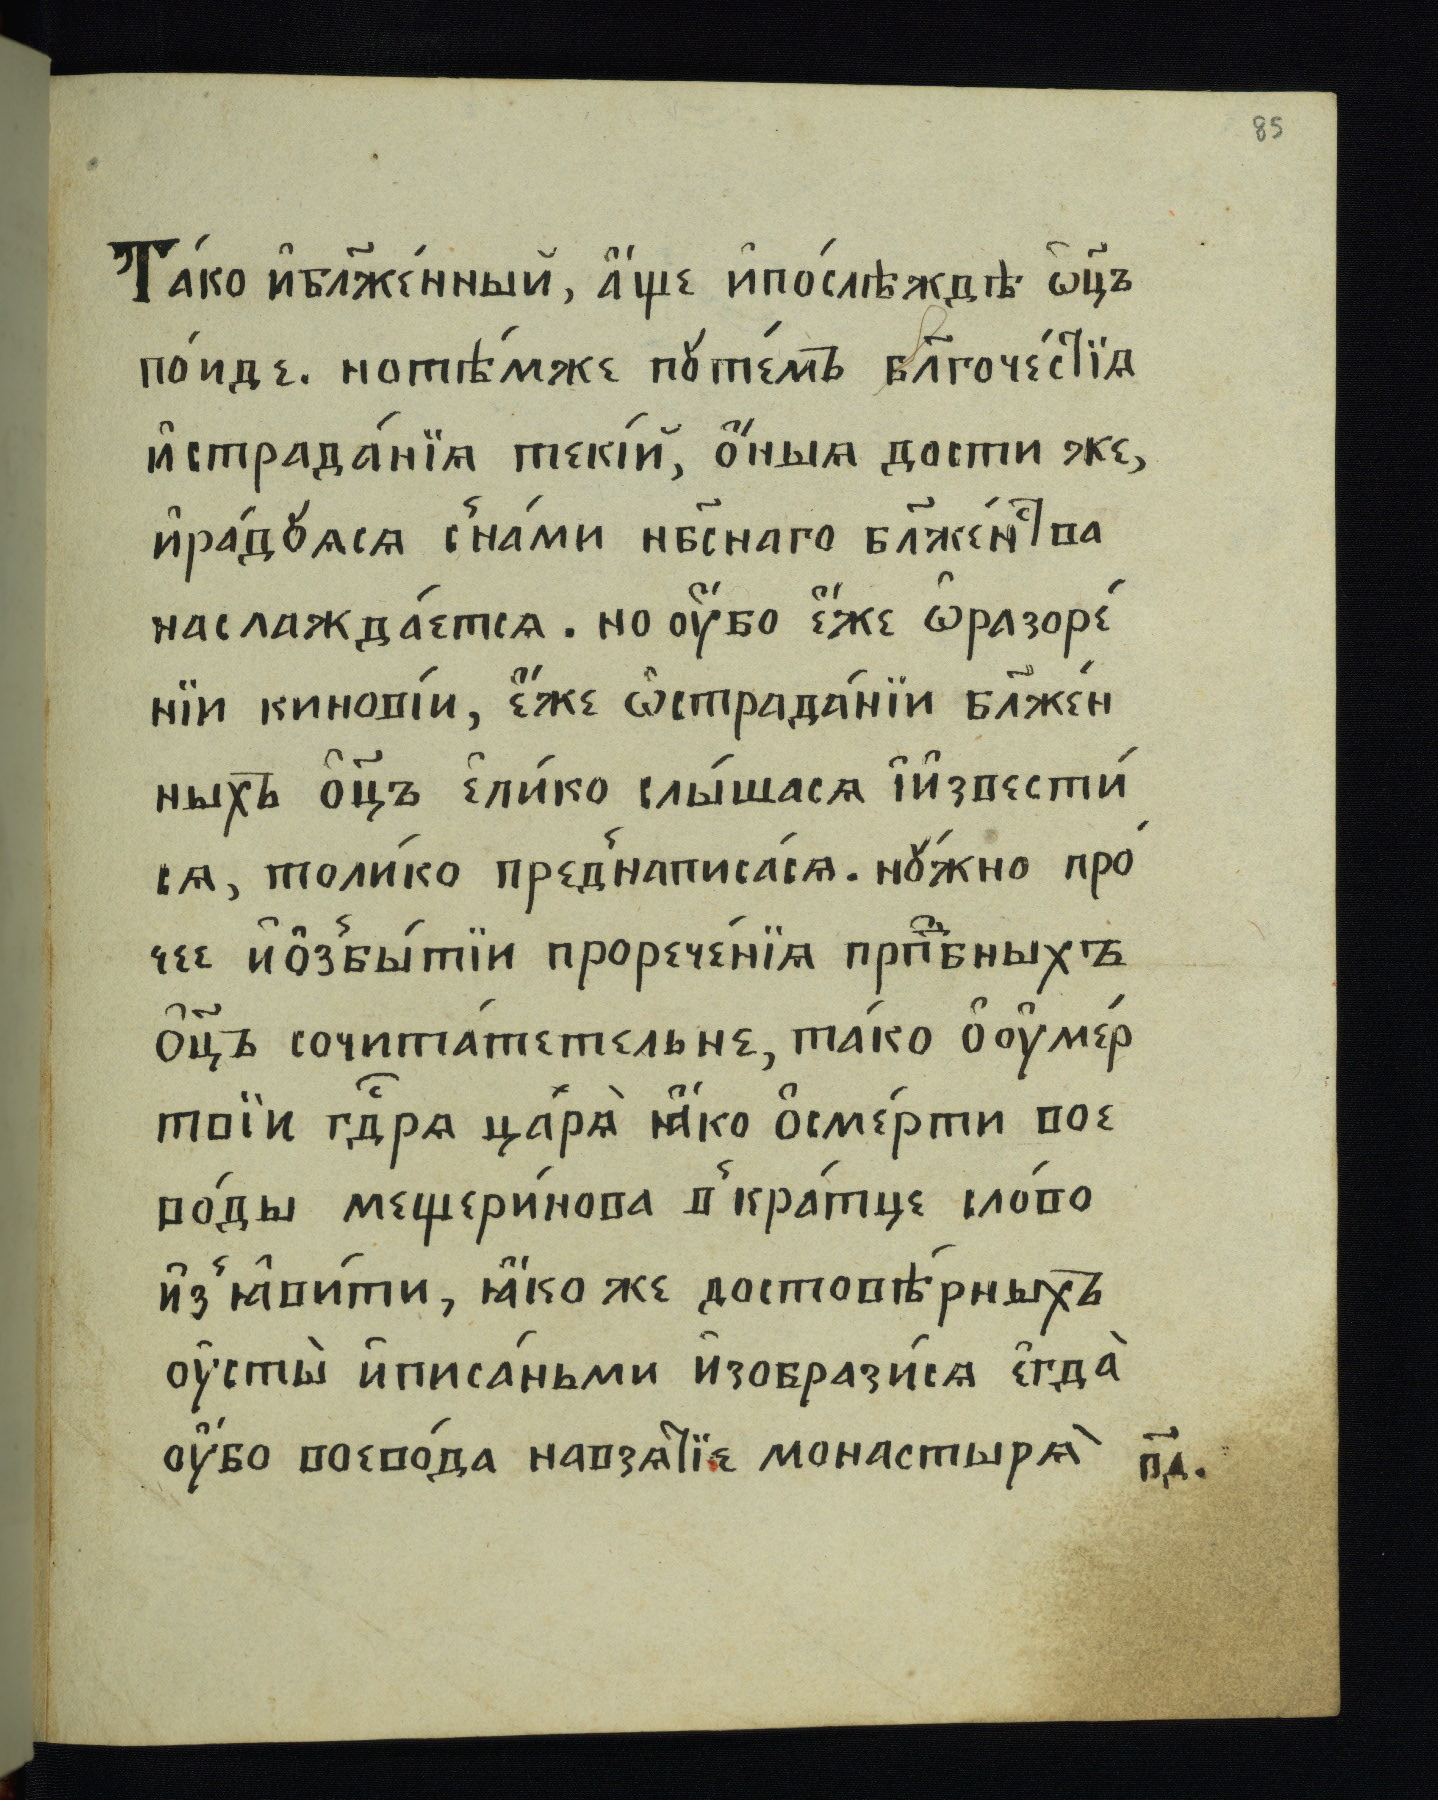 85
Та́ко и҆бл҃же́нный, а҆́ще и҆по́слѣждѣ ѡ҆ц҃ъ
по́иде. нотѣ́мже пꙋте́мъ бл҃гоче́стїѧ
и҆страда́нїѧ текі́й, ѻ҆́ныѧ дости же,
и҆ра́дꙋѧсѧ с̾на́ми нб҃снаго бл҃же́нства
наслажда́етсѧ. но оу҆́бо є҆́же ѡ҆разоре́
нїи кинові́и, є҆́же ѡ҆страда́нїи бл҃же́н
ныхъ ѻ҆ц҃ъ є҆ли́ко слы́шасѧ і҆и҆звести́
сѧ, толи́ко пред̾написа́сѧ. нꙋ́жно про́
чее и҆ѻ҆з̾бы́тїи прорече́нїѧ прп҃дбныхъ
ѻ҆ц҃ъ сочита́тетельне, та́ко ѻ҆оу҆ме́р
твїи гд҇рѧ царѧ̀ ꙗ҆́ко ѻ҆сме́рти вое
во́ды мещери́нова в̾кра́тце сло́во
и҆з̾ꙗ҆ви́ти, ꙗ҆́ко же достовѣ́рныхъ
оу҆сты̀ и҆писа́ньми и҆зобрази́сѧ є҆гда̀
оу҆́бо воево́да навзѧ́тїе монастырѧ̀
пд҃.